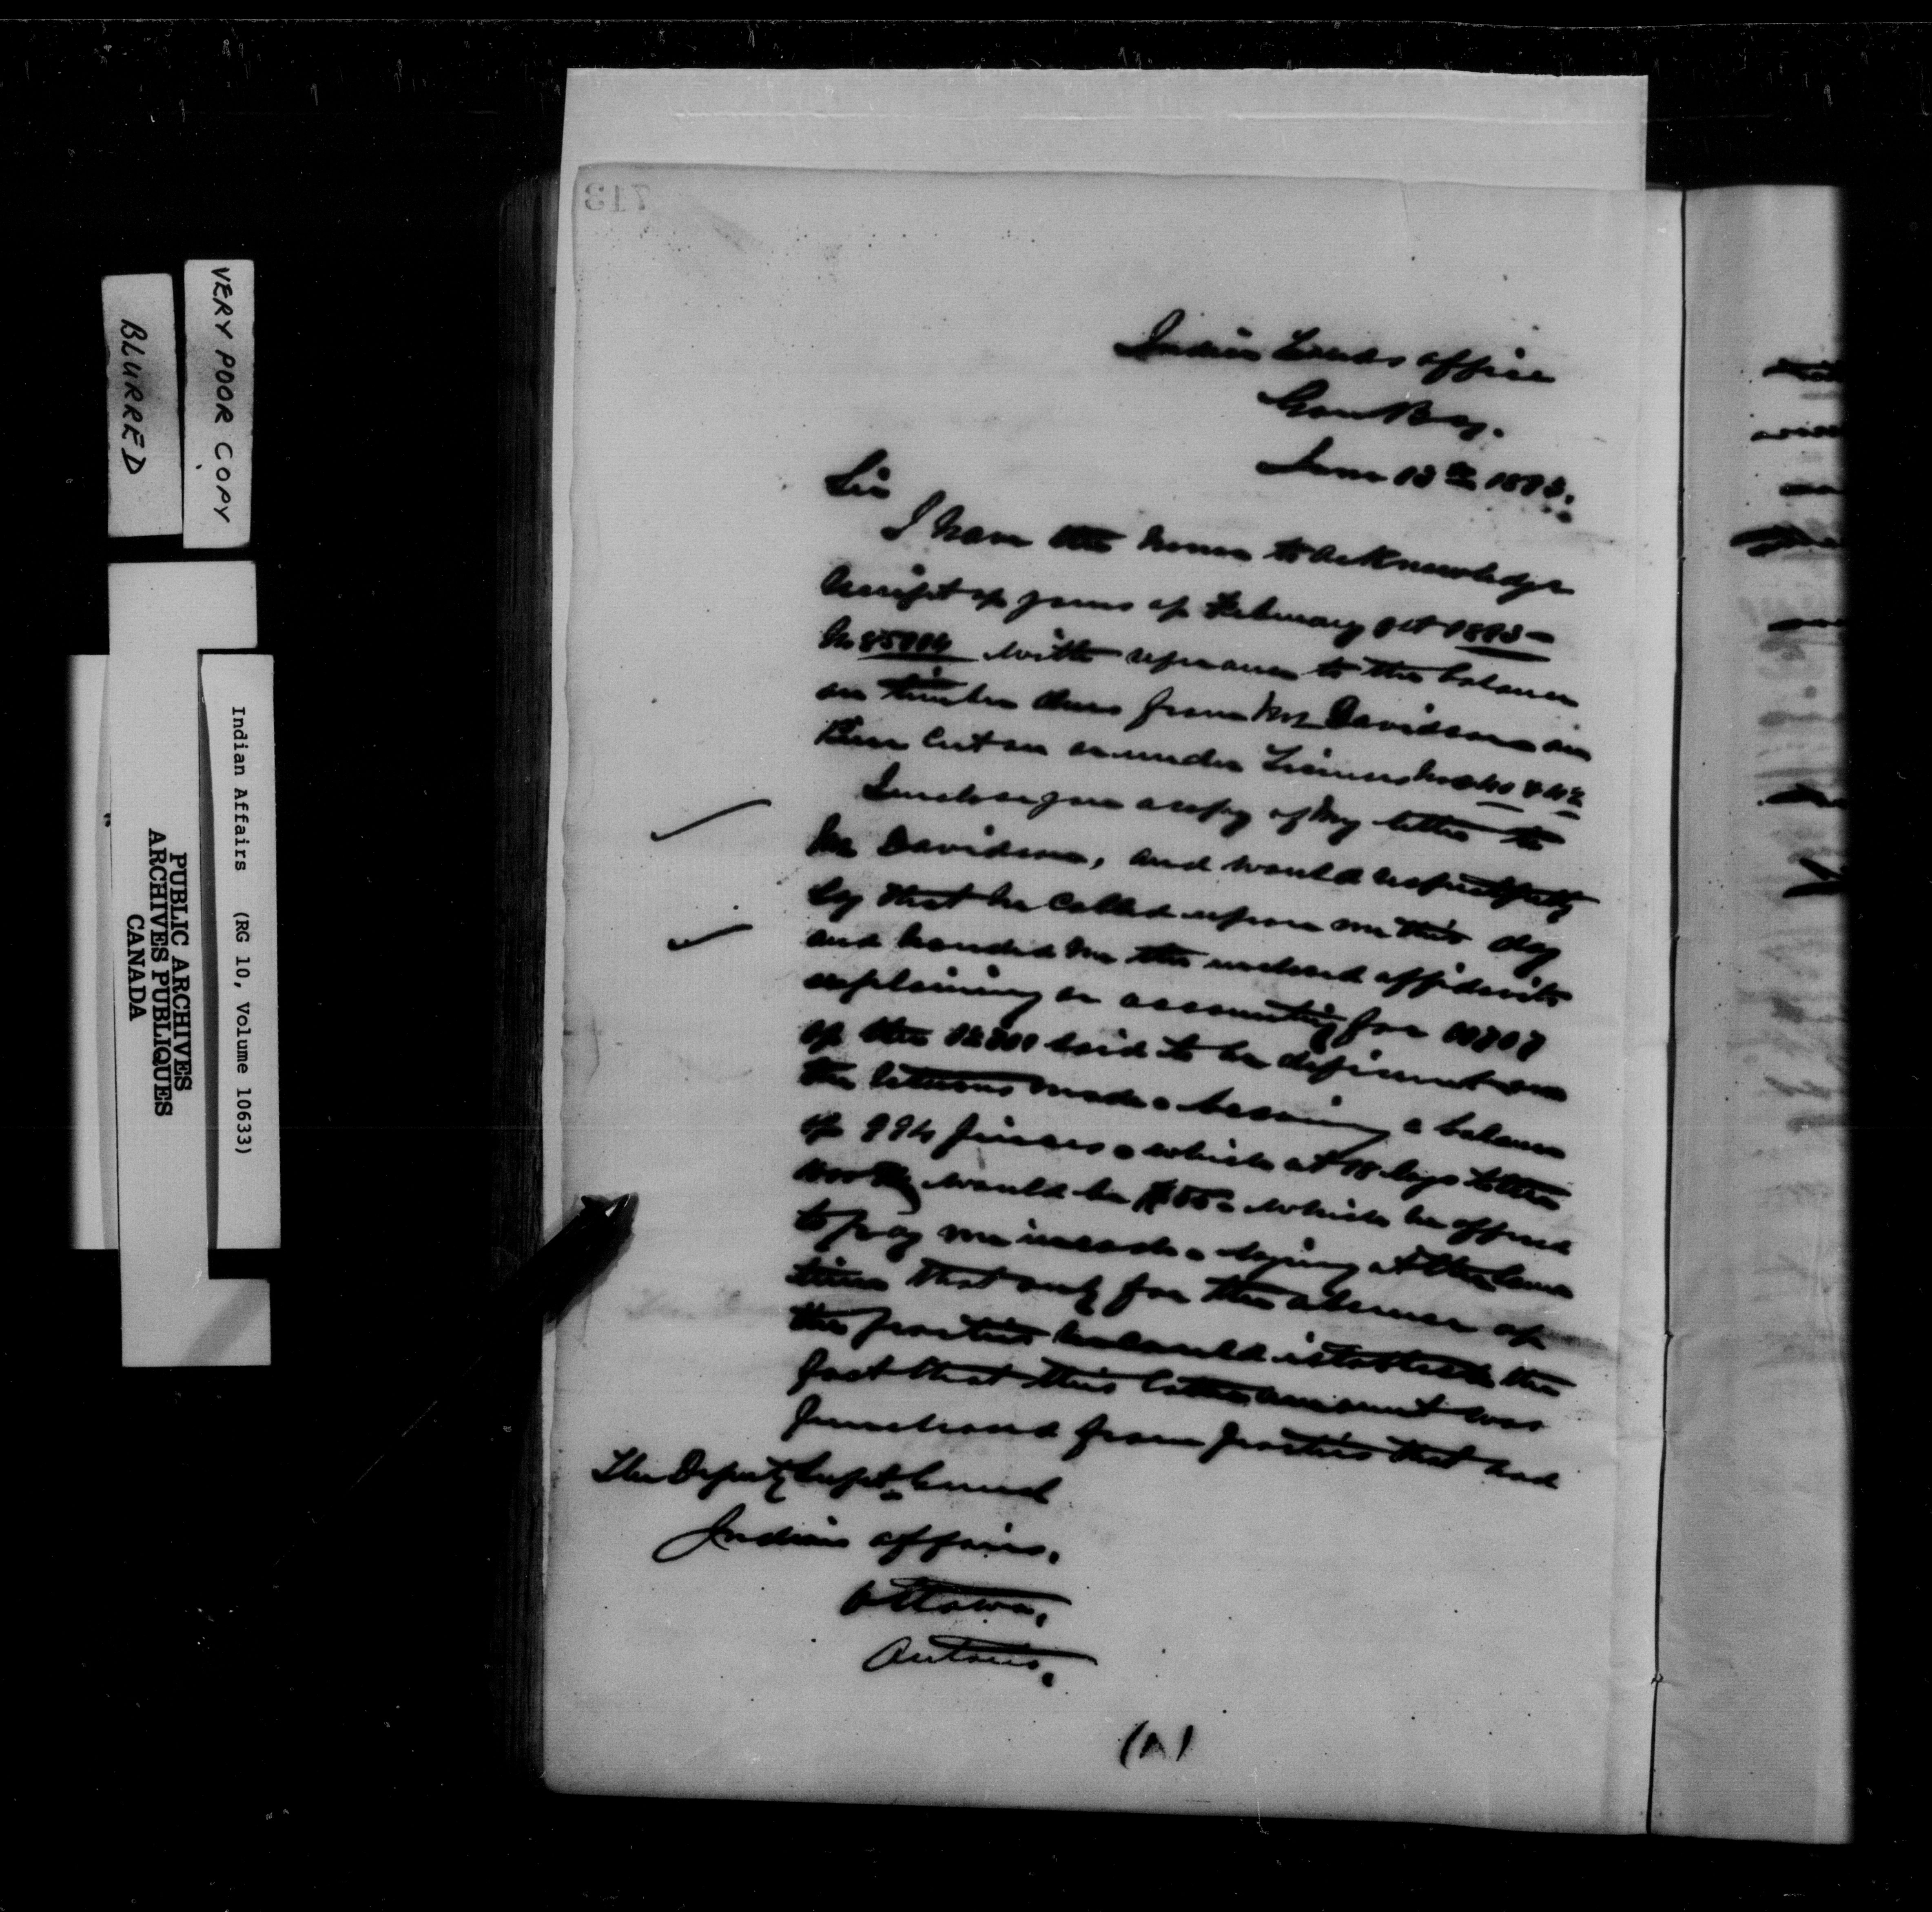 VERY POOR COPY
BLURRED
Indian Affairs (RG 10, Volume 10633)
PUBLIC ARCHIVES
ARCHIVES PUBLIQUES
CANADA
713
Indian Lands office
Gore Bay.
June 13th 1893.
Sir
I have the honor to acknowledge
receipt of yours of February 1893
No with reference to the balance
on timber dues from Mr Davidson
cut on or under Licenses
I enclose you a copy of my letter to
Mr Davidson, and would respectfully
say that he called upon me this day
and handed me the enclosed affidavits
explaining or accounting for
of the said to be deficient on
the returns made leaving a balance
of pieces which at logs to the
would be which he offered
to pay me saying at the same
time that only for the absence of
the parties he could establish the
fact that this latter amount was
purchased from parties that had
The Deputy Supt General
Indian affairs.
Ottawa,
Ontario.